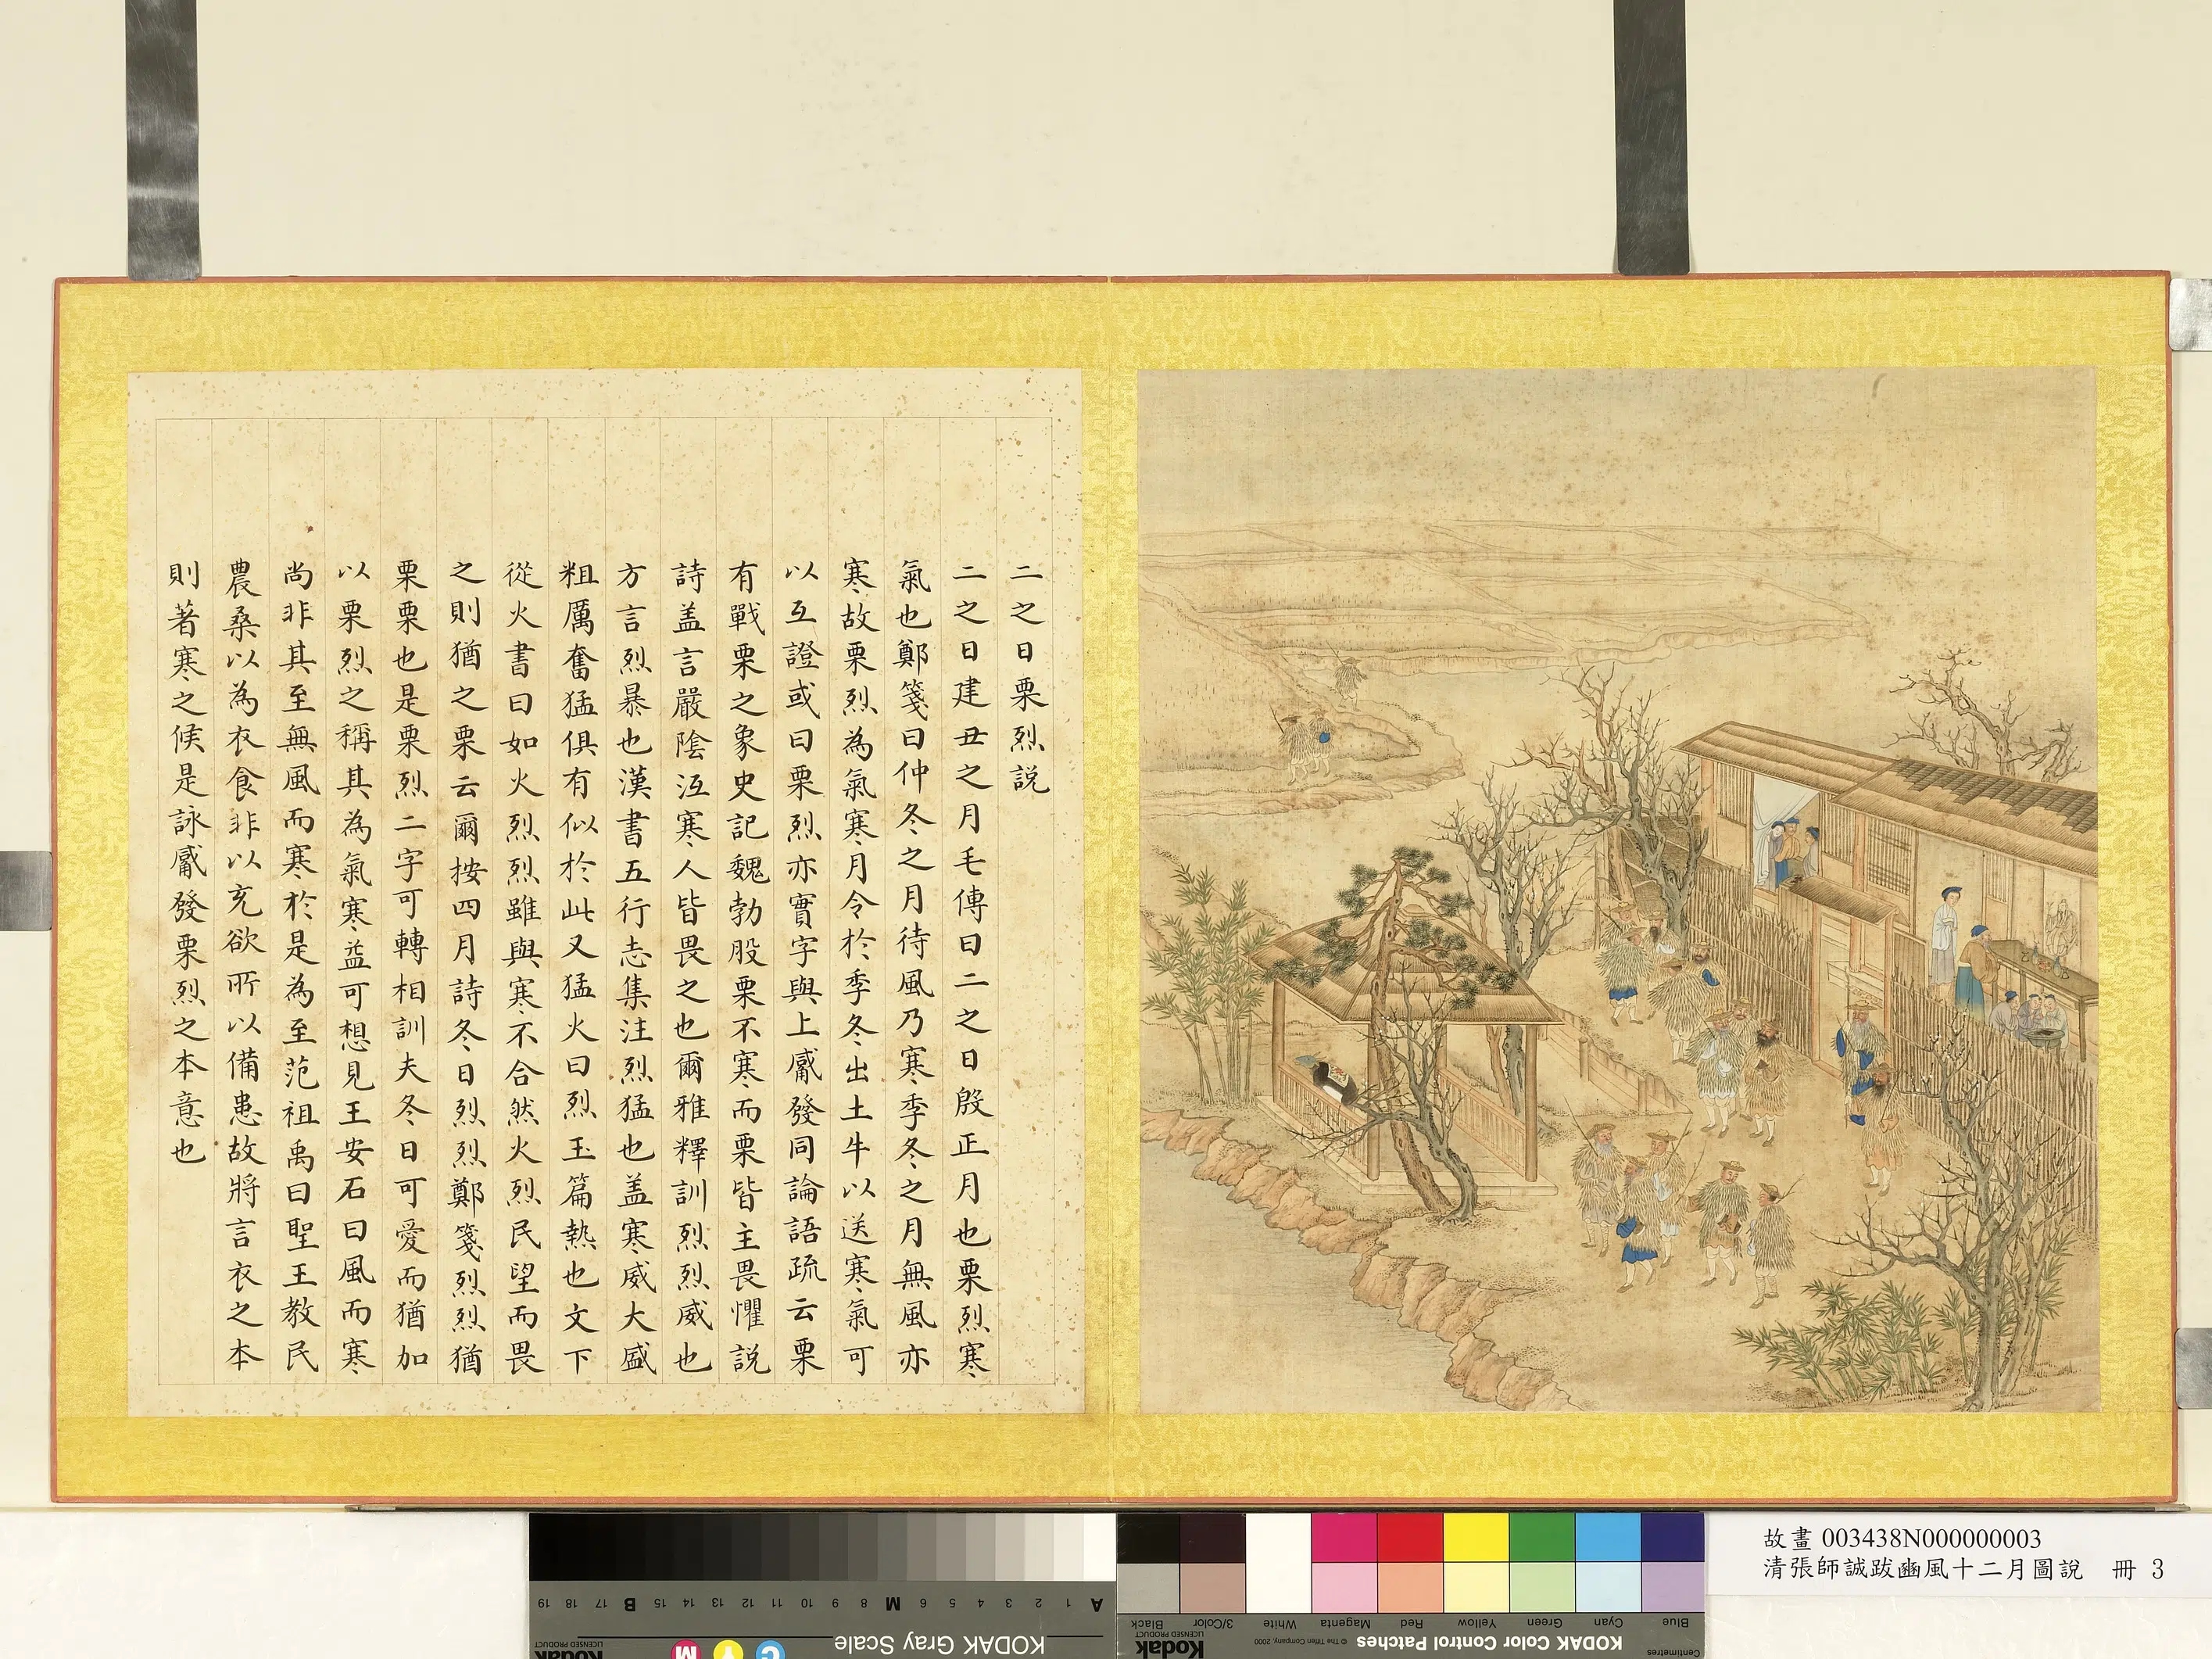 二之日栗烈説
二之日建丑之月毛傳曰二之日殷正月也栗烈寒
氣也鄭箋曰仲冬之月待風乃寒季冬之月無風亦
寒故栗烈為氣寒月令於季冬出土牛以送寒氣可
以互證或曰栗烈亦實字與上觱發同論語疏云栗
有戰栗之象史記魏勃股栗不寒而栗皆主畏懼説
詩盖言嚴陰沍寒人皆畏之也爾雅釋訓烈烈威也
方言烈暴也漢書五行志集注烈猛也盖寒威大盛
粗厲奮猛俱有似於此又猛火曰烈玉篇熱也文下
從火書曰如火烈烈雖與寒不合然火烈民望而畏
之則猶之栗云爾按四月詩冬日烈烈鄭箋烈烈猶
栗栗也是栗烈二字可轉相訓夫冬日可愛而猶加
以栗烈之稱其為氣寒益可想見王安石曰風而寒
尚非其至無風而寒於是為至范祖禹曰聖王教民
農桑以為衣食非以充欲所以備患故將言衣之本
則著寒之候是詠觱發栗烈之本意也
故畫 003438N000000003
清張師誠跋豳風十二月圖説 冊 3
KODAK Gray Scale
A 1 2 3 4 5 6 M 8 9 10 11 12 13 14 15 B 17 18 19
C Y M
Kodak
LICENSED PRODUCT
KODAK Color Control Patches
© The Tiffen Company, 2000
Kodak
LICENSED PRODUCT
Centimetres
Blue Cyan Green Yellow Red Magenta White 3/Color Black